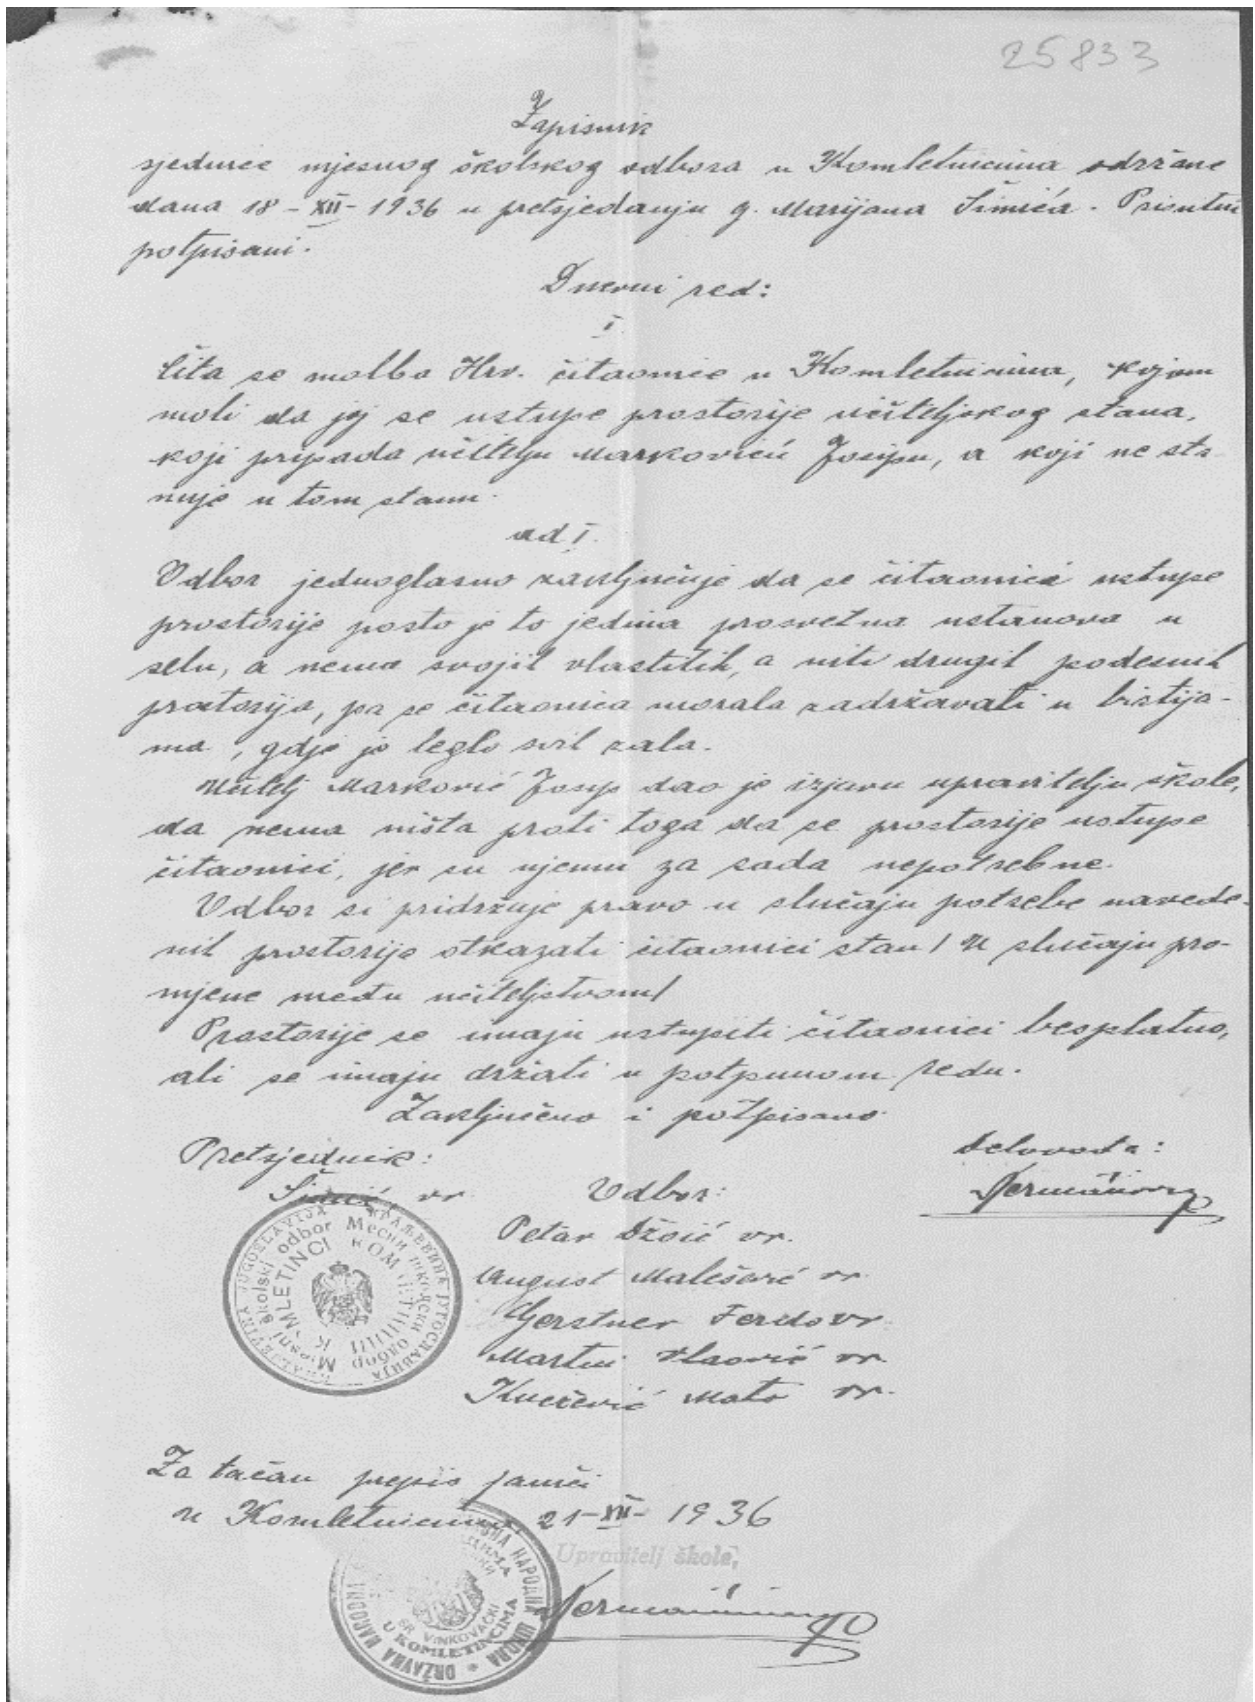 25833
Zapisnik
sjednice mjesnog školskog odbora u Komletincima održane
dana 18-XII-1936 u pretsjedanju g. Marijana Šimića. Prisutni
potpisani.
Dnevni red:
I.
Čita se molba Hrv. čitaonice u Komletincima, kojom
moli da joj se ustupe prostorije učiteljskog stana,
koji pripada učitelju Markoviću Josipu, a koji ne sta-
nuje u tom stanu.
ad I.
Odbor jednoglasno zaključuje da se čitaonici ustupe
prostorije pošto je to jedina prosvetna ustanova u
selu, a nema svojih vlastitih, a niti drugih podesnih
prostorija, pa se čitaonica morala zadržavati u birtija-
ma, gdje je leglo svih zala.
Učitelj Marković Josip dao je izjavu upravitelju škole,
da nema ništa proti toga da se prostorije ustupe
čitaonici, jer su njemu za sada nepotrebne.
Odbor si pridržuje pravo u slučaju potrebe navede-
nih prostorija otkazati čitaonici stan / U slučaju pro-
mjene među učiteljstvom/
Prostorije se imaju ustupiti čitaonici besplatno,
ali se imaju držati u potpunom redu.
Zaključeno i potpisano.
Pretsjednik:
Delovođa:
Šimić vr.
Odbor:
Petar Džoić vr.
August Malešević vr.
Gerstner Ferdo vr.
Martin Vlaović vr.
Knežević Mato vr.
KRALJEVINA JUGOSLAVIJA КРАЉЕВИНА ЈУГОСЛАВИЈА
Mjesni školski odbor Месни школски одбор
KOMLETINCI
Za tačan prepis jamči
u Komletincima, 21-XII-1936
Upravitelj škole,
DRŽAVNA НАРОДНА ШКОЛА
SR. VINKOVAČKI
U KOMLETINCIMA